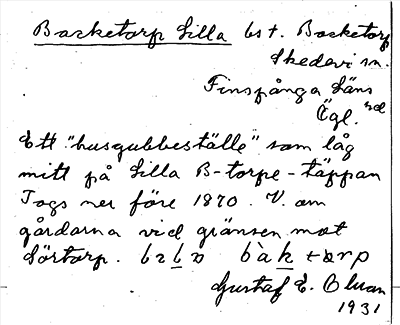 Backetorp Lilla bst. Backetorp
Skedevi sn.
Finspånga Läns
hd
Ögl.
Ett "husgubbeställe" som låg
mitt på Lilla B-torpe-täppan
Togs ner före 1870. V. om
gårdarna vid gränsen mot
Sörtorp. bàk tørp
Gustaf E.
1931